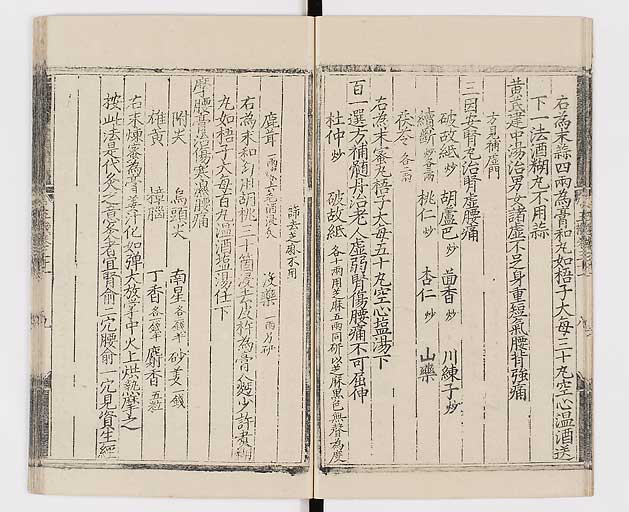 右為末蒜四兩為膏和丸如梧子大每三十丸空心温酒送
下一法酒糊丸不用蒜
黄芪建中湯治男女諸虛不足身重短氣腰背強痛
方見補虛門
三因安腎丸治腎虛腰痛
破故紙炒 胡盧巴炒 茴香炒 川練子炒
續斷炒各三兩 桃仁炒 杏仁炒 山藥
茯苓各二兩
右為末蜜丸梧子大每五十丸空心塩湯下
百一選方補髓丹治老人虛弱腎傷腰痛不可屈伸
杜仲炒 破故紙各十兩用芝麻五兩同炒以芝麻黑色無聲為度
篩去芝麻不用
鹿茸二兩 没藥一兩另研
右為末和勻用胡桃三十箇浸去皮杵為膏入麫少許煮糊
丸如梧子大每百丸温酒塩湯任下
摩腰膏治傷寒濕腰痛
附尖 烏頭尖 南星各錢半 砂 一錢
雄黄 樟腦 丁香各錢半 麝香五粒
右末煉蜜為膏姜汁化如弹大放掌中火上烘熱摩之
按此法是代灸之意灸者宜腎俞二穴腰俞一穴見資生經